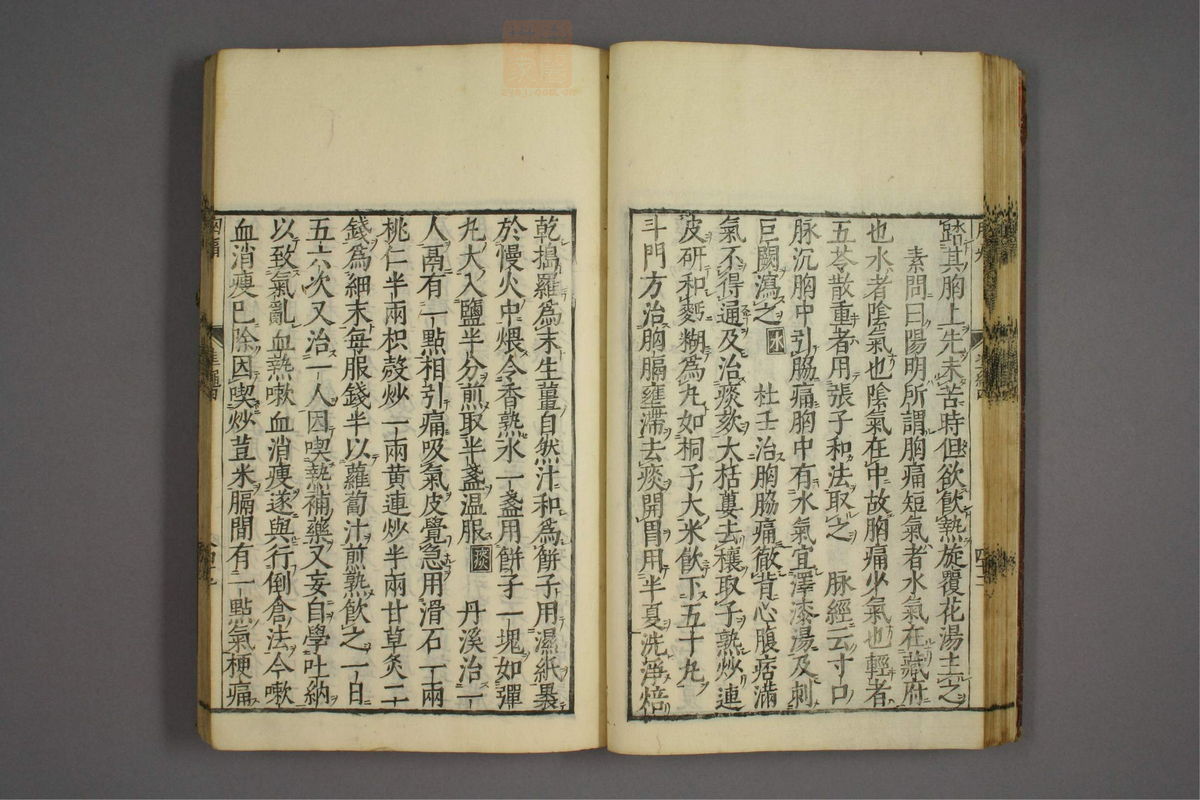 踏其胸上先未苦時但欲飲熱旋覆花湯主之
素問曰陽明所謂胸痛短氣者水氣在藏府
也水者陰氣也陰氣在中故胸痛少氣也輕者
五苓散重者用張子和法取之　脉經云寸口
脉沉胸中引脇痛胸中有水氣宜澤漆湯及刺
巨闕瀉之 水　杜壬治胸脇痛徹背心腹痞滿
氣不得通及治痰欬大栝蔞去穰取子熟炒連
皮研和麪糊爲丸如桐子大米飲下五十丸
斗門方治胸膈壅滯去痰開胃用半夏洗淨焙
乾搗羅爲末生薑自然汁和爲餅子用濕紙裹
於慢火中煨令香熟水一盞用餅子一塊如彈
丸大入鹽半分煎取半盞温服 痰　丹溪治一
人鬲有一點相引痛吸氣皮覺急用滑石一兩
桃仁半兩枳殼炒一兩黄連炒半兩甘草炙二
錢爲細末每服錢半以蘿蔔汁煎熟飲之一日
五六次又治一人因喫熱補藥又妄自學吐納
以致氣亂血熱嗽血消瘦遂與行倒倉法今嗽
血消瘦已除因喫炒荳米膈間有一點氣梗痛